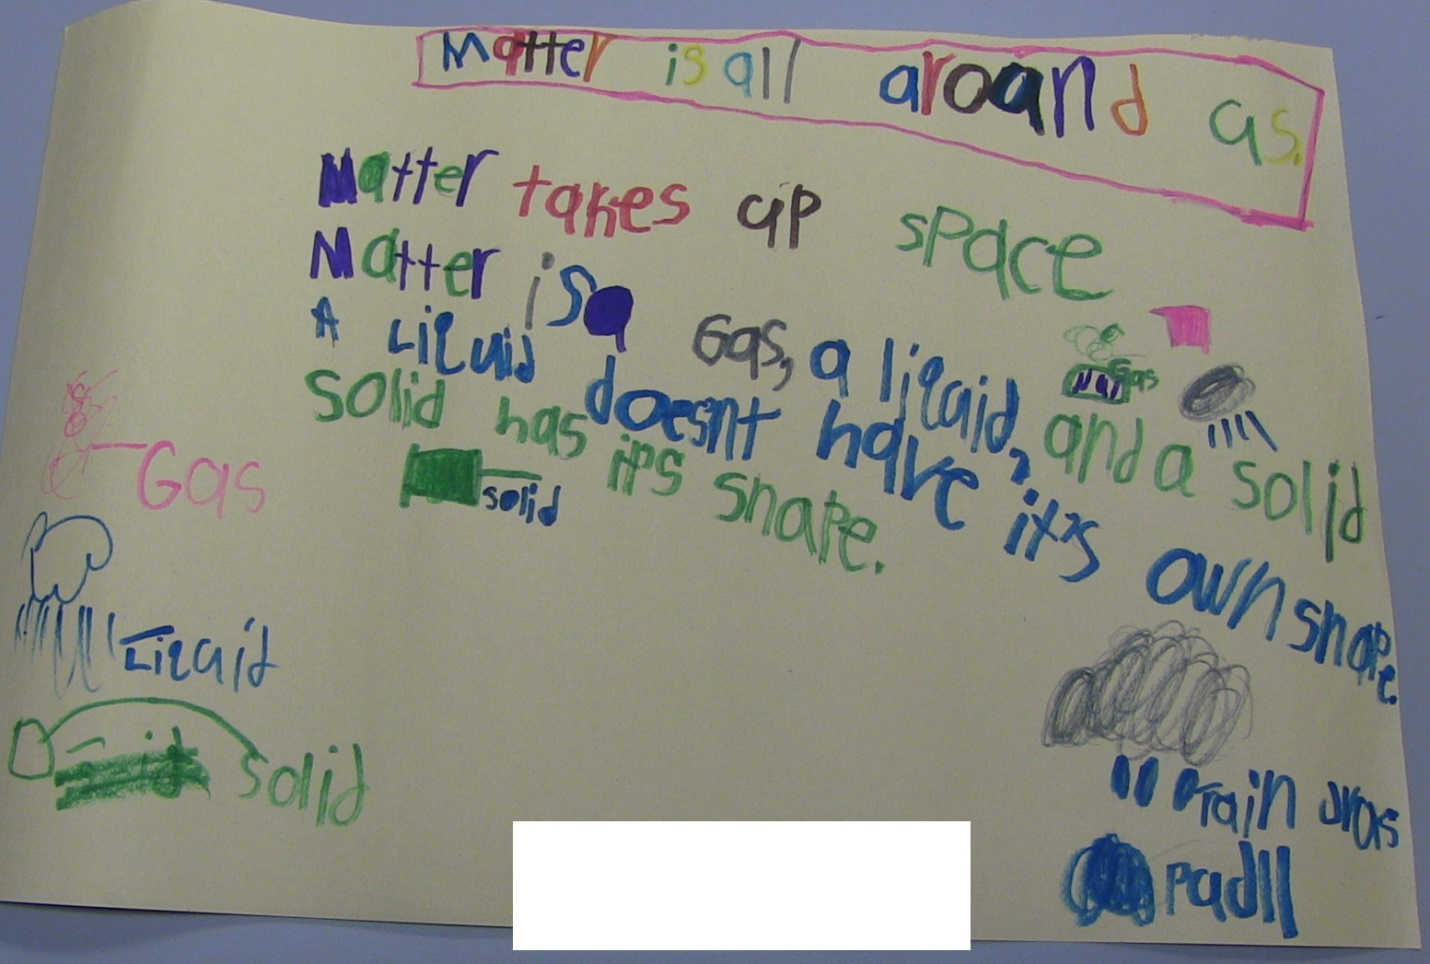 Matter is all around us.
Matter takes up space
Matter is a Gas, a liquid, and a solid
A Liquid doesnt have it's own shape.
solid has its shape.
Gas
solid
Gas
Liquid
solid
rain drops
padll